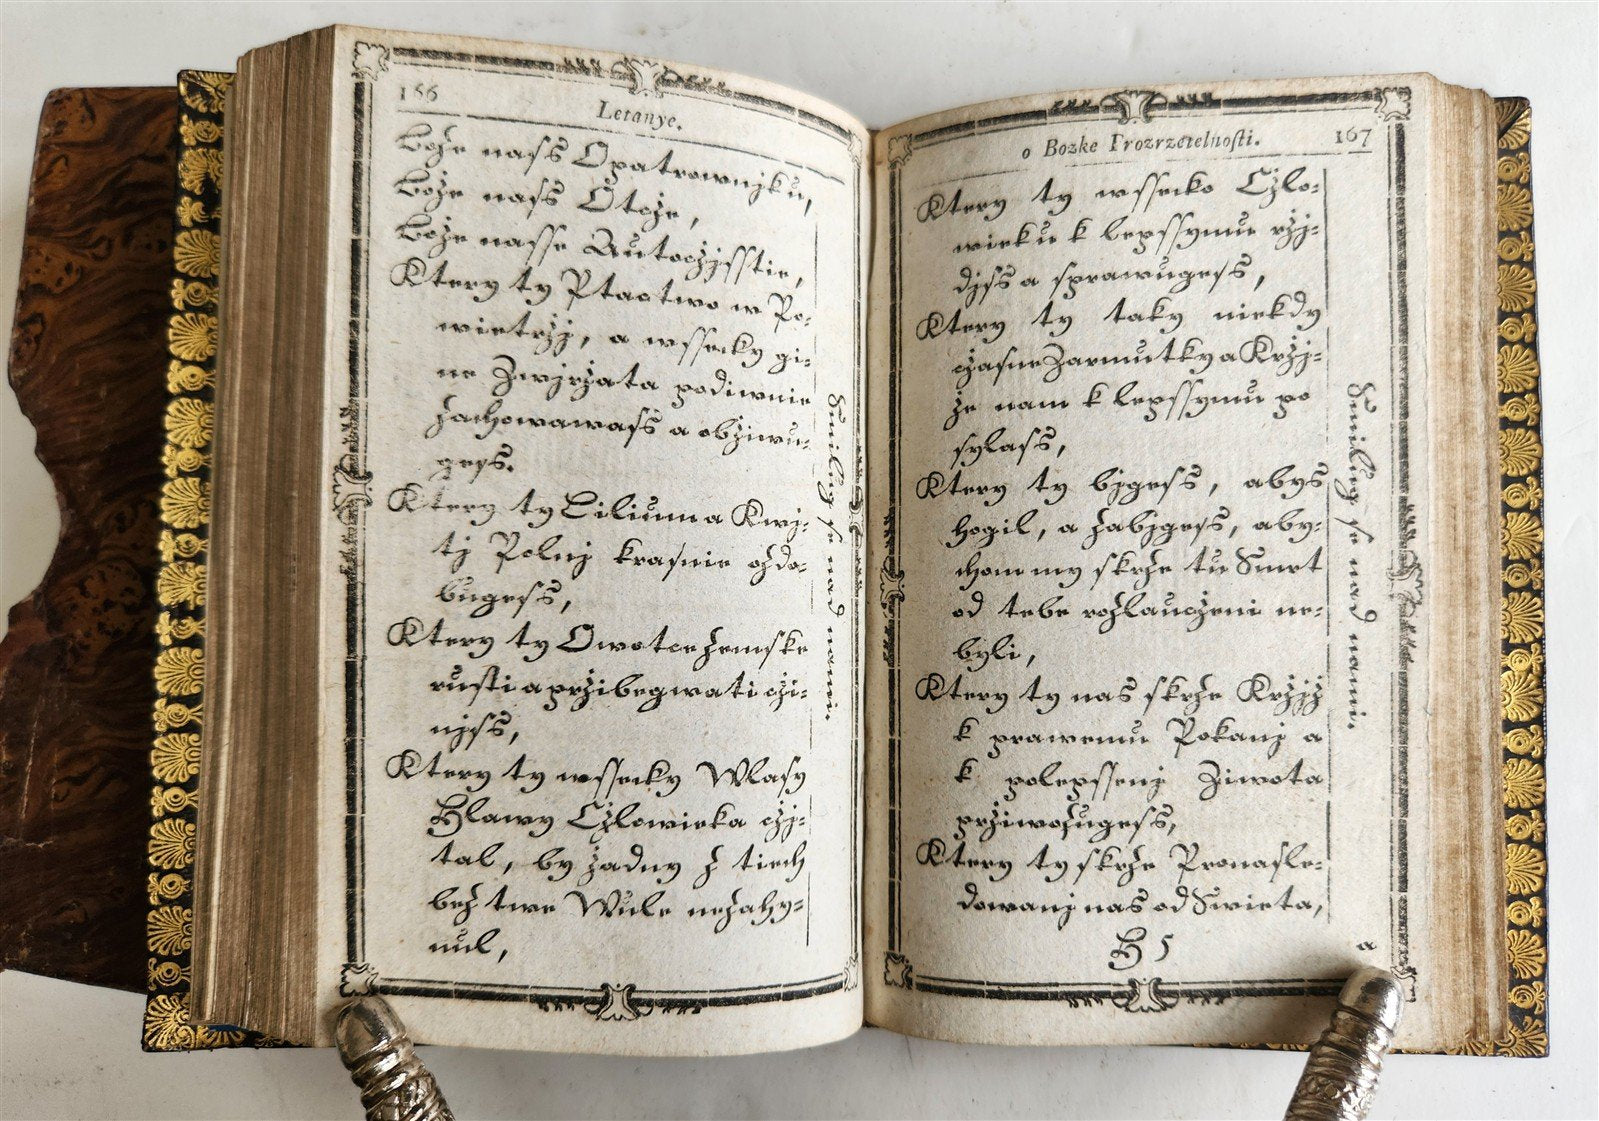 166
Letanye.
Bože nass Opatrownjku,
Bože nass Otcže,
Bože nasse Autocžjsstie,
Ktery ty Ptactwo w Po-
wietržj, a wssecky gi-
ne Zwjržata podiwnie
zachowawass a obžiwu-
gess.
Ktery ty Lilium a Kwj-
tj Polnj krasnie ozdo-
bugess,
Ktery ty Owotce zemske
rusti a pržibegwati cži-
njss,
Ktery ty wssecky Wlasy
Hlawy Cžlowieka cžj-
tal, by žadny z tiech
bez twe Wule nezahy-
nul,
Smilug se nad nami.
o Bozke Prozrzetelnosti.
167
Ktery ty wssecko Cžlo-
wieku k lepssymu ržj-
djss a sprawugess,
Ktery ty taky niekdy
cžasne Zarmutky a Kržj-
že nam k lepssymu po
sylass,
Ktery ty bjgess, abys
hogil, a zabjgess, aby-
chom my skrze tu Smrt
od tebe rozlaucženi ne-
byli,
Ktery ty nas skrze Kržjž
k prawemu Pokanj a
k polepssenj Ziwota
pržiwozugess,
Ktery ty skrze Pronasle-
dowanj nas od Swieta,
Smilug se nad nami.
H 5
a